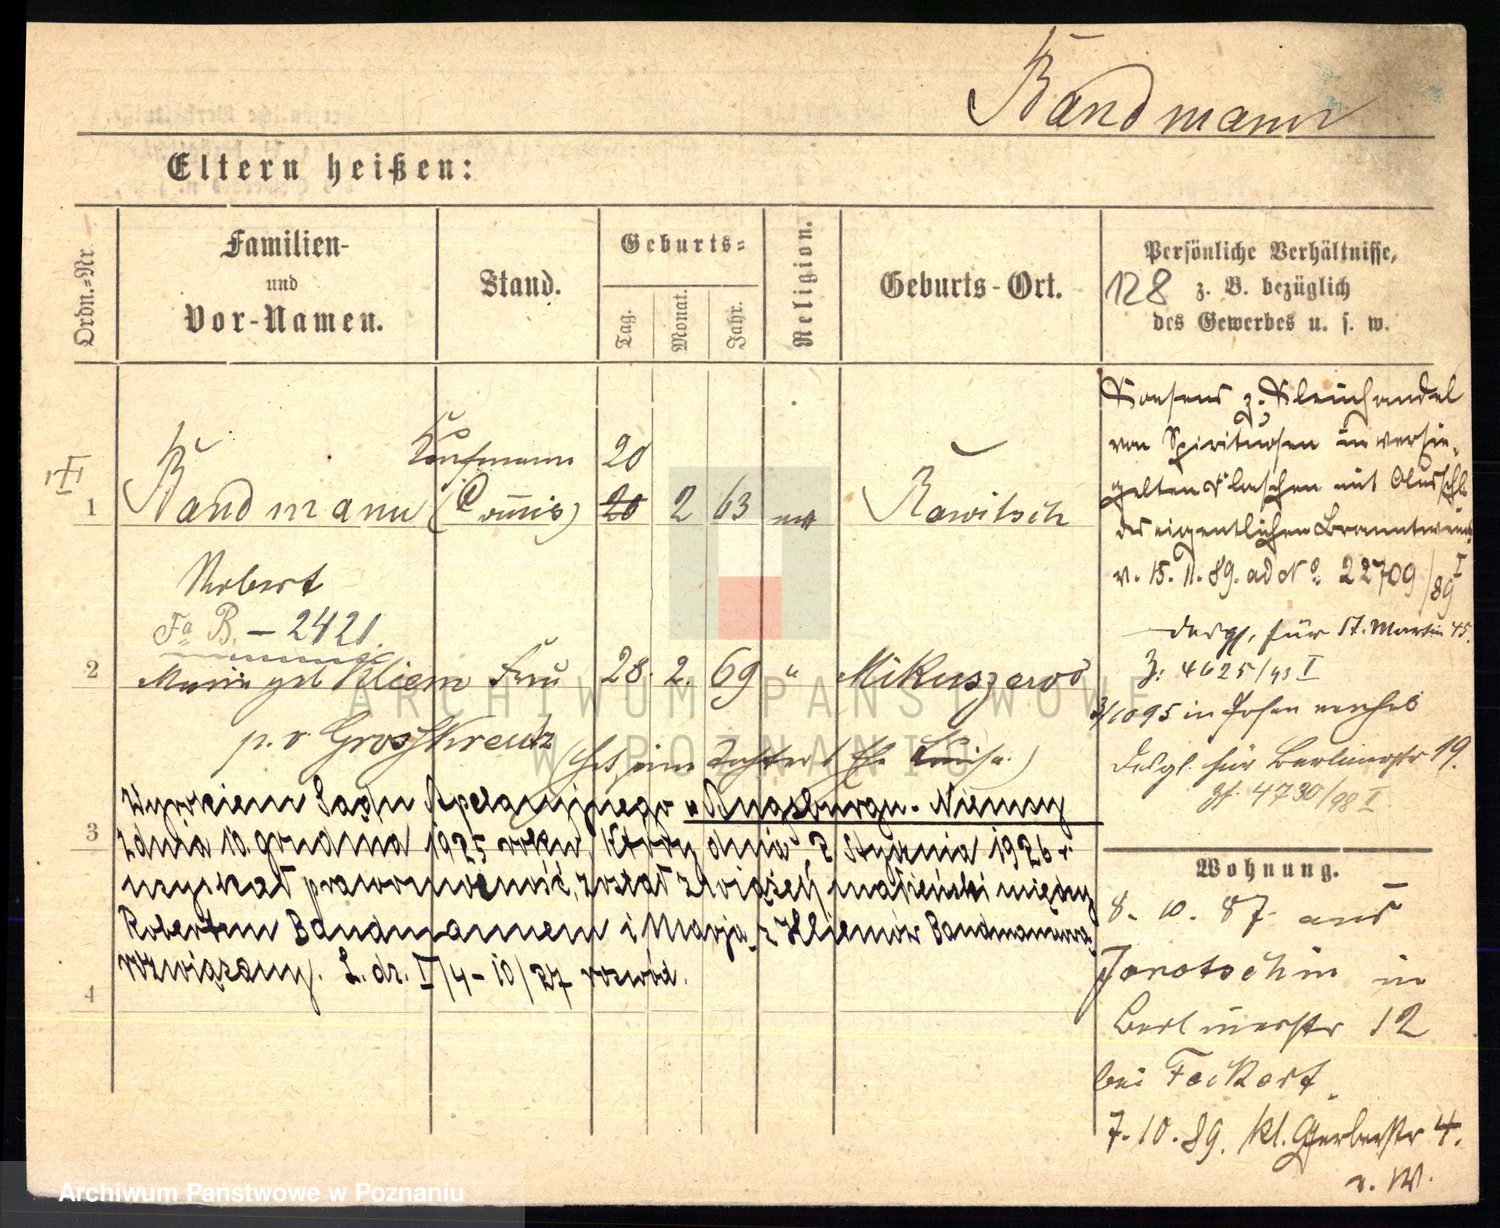 Bandmann
Eltern heißen:
Ordn.-Nr.
Familien-
und
Vor-Namen.
Stand.
Geburts-
Tag.
Monat.
Jahr.
Religion.
Geburts-Ort.
Persönliche Verhältnisse,
128 z. B. bezüglich
des Gewerbes u. s. w.
Kaufmann 20
1 Bandmann (Com̄is) 20 2 63 Rawitsch
Robert
Fa B. – 2421.
2 Marie geb Kliem Frau 28. 2. 69 " Mikuszewo
p. v Grosskreutz
Wyrokiem Sądu Apelacyjnego w Augsburgu - Niemcy
3 z dnia 10. grudnia 1925 roku, który dnia 2 Stycznia 1926 r.
uzyskał prawomocność, został związek małżeński między
Robertem Bandmannem i Marją z Kliemów Bandmannową
rozwiązany. L. dz. I/4-10/27 rozwód.
4
Konsens z. Kleinhandel
von Spirituosen in versie-
gelten Flaschen mit Ausschl.
des eigentlichen Branntweins
v. 15. 11. 89. ad No. 22709/89 I
desgl. für St. Martin 45.
Z: 4625/93 I
desgl. für Berlinerstr 19.
4730/98 I
Wohnung.
8. 10. 87. aus
Jarotschin in
Berlinerstr 12
bei
7. 10. 89. kl. Gerberstr 4.
v. W.
ARCHIWUM PAŃSTWOWE
W POZNANIU
Archiwum Państwowe w Poznaniu